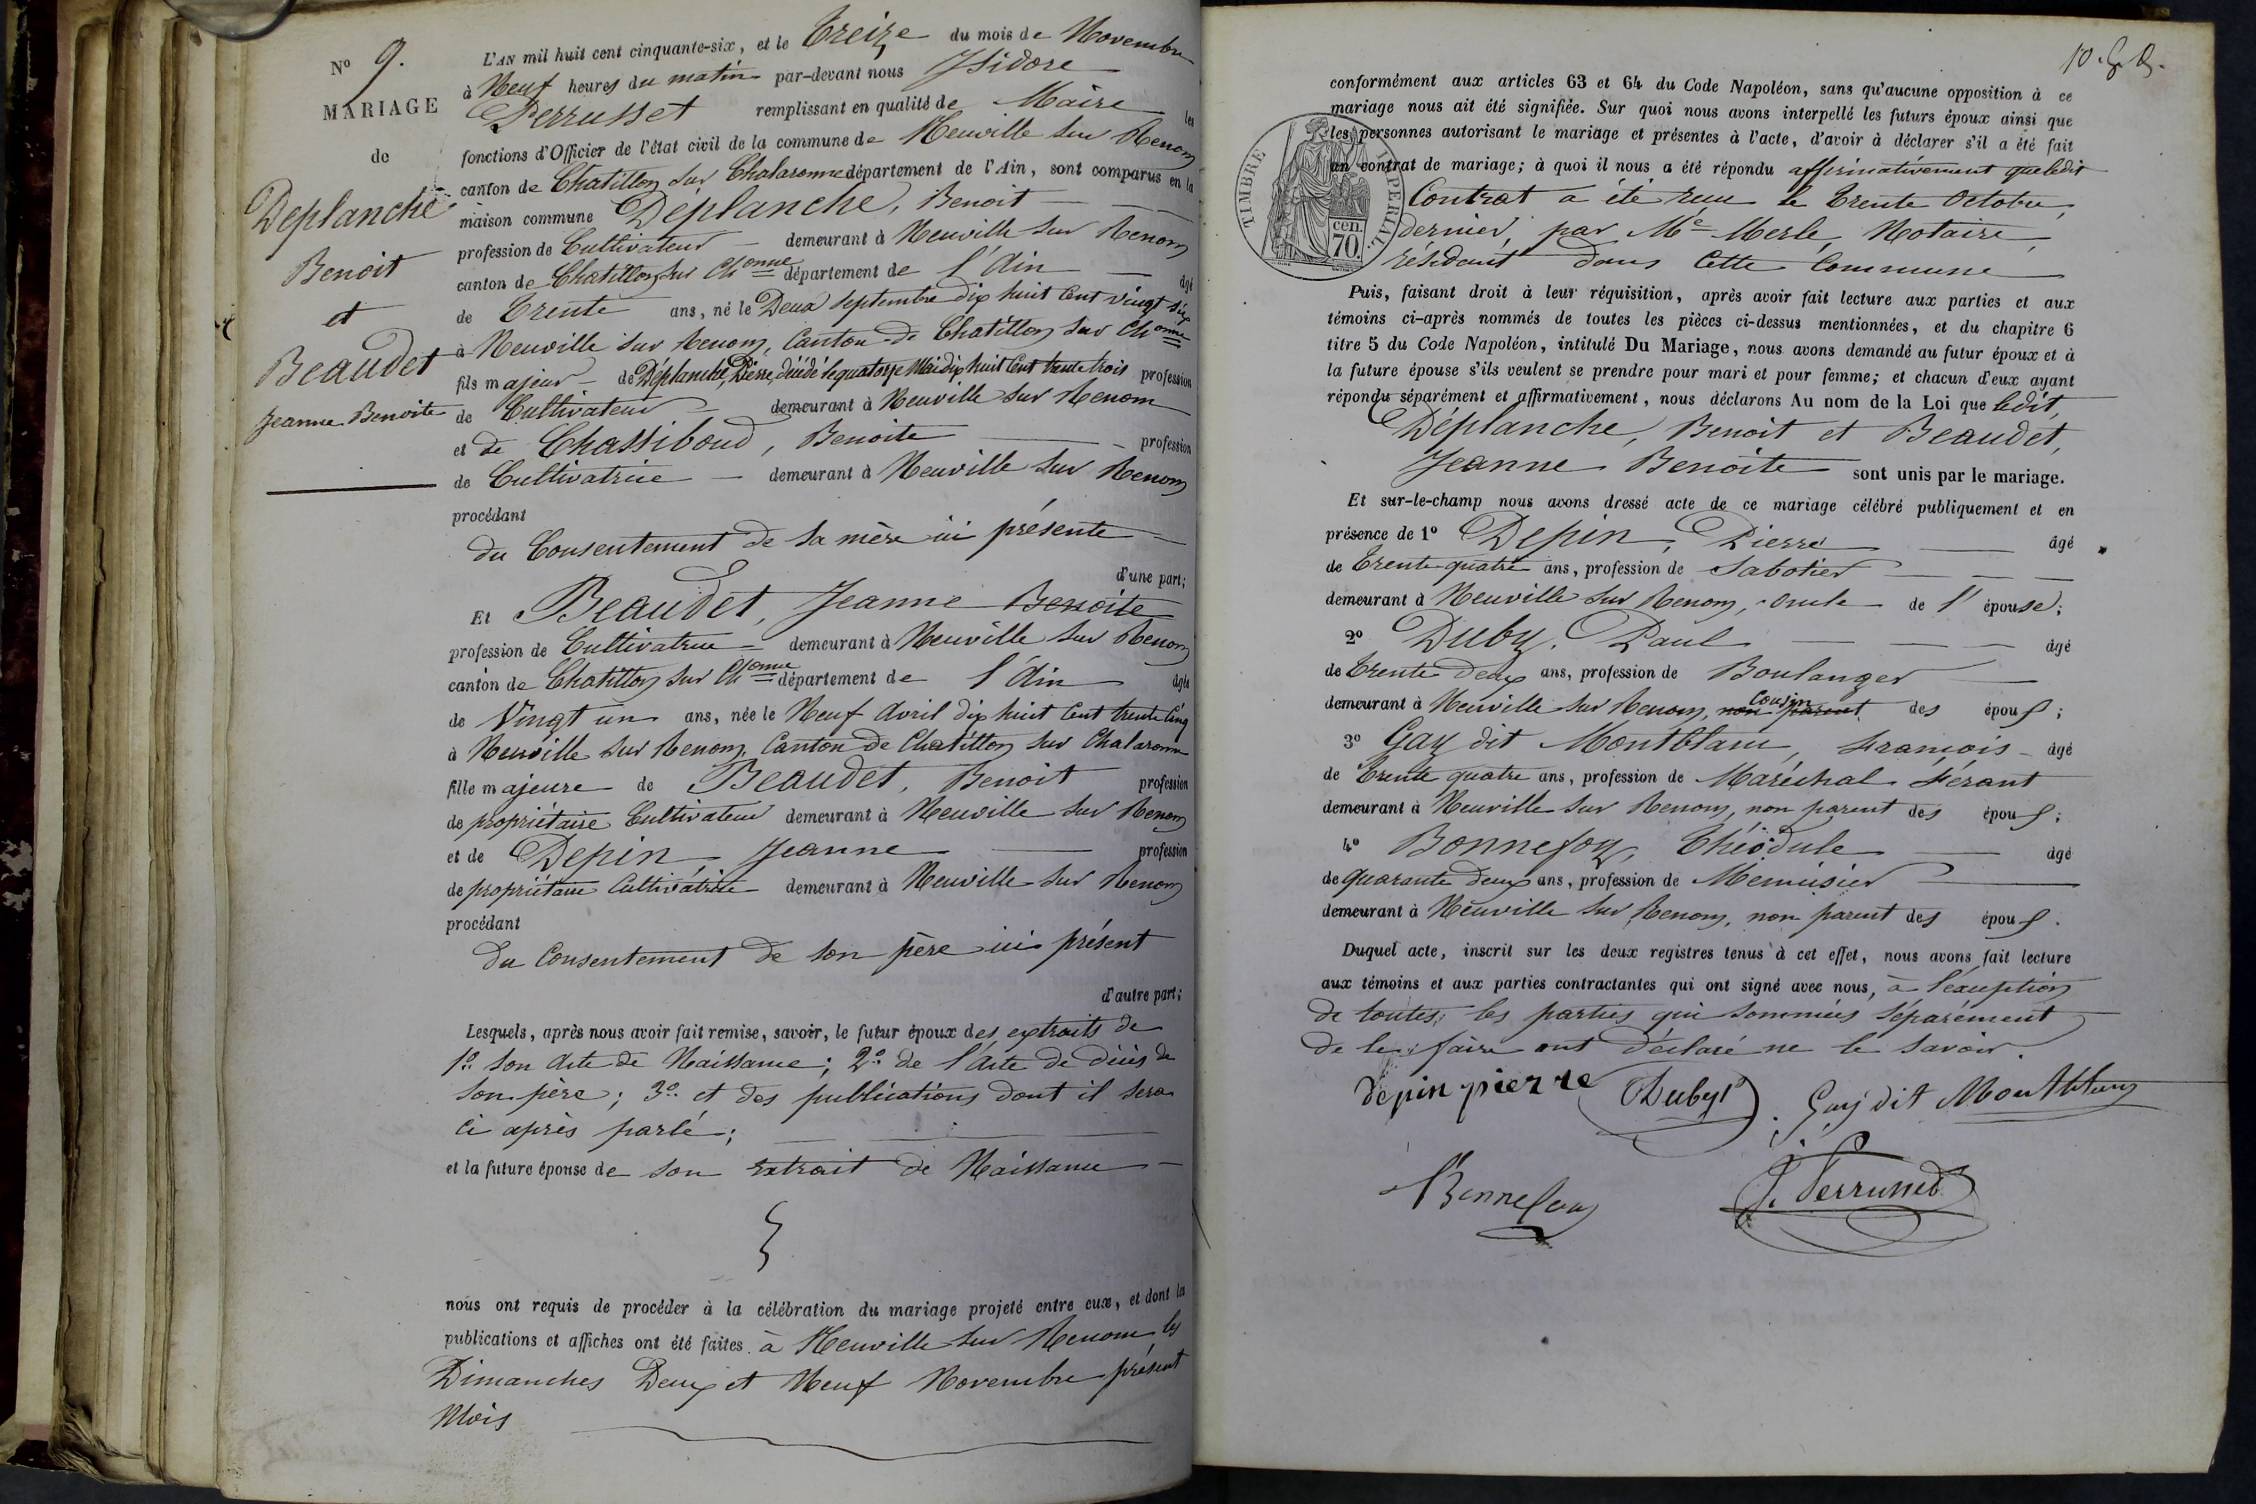 N° 9.
MARIAGE
de
Déplanche
Benoit
et
Beaudet
Jeanne Benoite
L'AN mil huit cent cinquante-six, et le Treize du mois de Novembre
à Neuf heures du matin par-devant nous Isidore
Perrusset remplissant en qualité de Maire les
fonctions d'Officier de l'état civil de la commune de Neuville sur Renom
canton de Chatillon sur Chalaronne département de l'Ain, sont comparus en la
maison commune Déplanche, Benoit
profession de Cultivateur demeurant à Neuville sur Renom
canton de Chatillon sur Chonne département de l'Ain âgé
de Trente ans, né le Deux septembre dix huit Cent vingt six
à Neuville sur Renom, Canton de Chatillon sur Chonne
fils majeur de Déplanche, Pierre, décédé le quatorze Mai dix huit Cent trente trois profession
de Cultivateur demeurant à Neuville sur Renom
et de Chassiboud, Benoite profession
de Cultivatrice demeurant à Neuville sur Renom
procédant
du Consentement de sa mère ici présente
d'une part;
Et Beaudet, Jeanne Benoite
profession de Cultivatrice demeurant à Neuville sur Renom
canton de Chatillon sur Chonne département de l'Ain âgée
de Vingt un ans, née le Neuf Avril dix huit Cent trente Cinq
à Neuville sur Renom, Canton de Chatillon sur Chalaronne
fille majeure de Beaudet, Benoit profession
de propriétaire Cultivateur demeurant à Neuville sur Renom
et de Depin, Jeanne profession
de propriétaire Cultivatrice demeurant à Neuville sur Renom
procédant
du Consentement de son père ici présent
d'autre part;
Lesquels, après nous avoir fait remise, savoir, le futur époux des extraits de
1° son Acte de Naissance; 2° de l'Acte de décès de
son père; 3° et des publications dont il sera
ci après parlé;
et la future épouse de son Extrait de Naissance
nous ont requis de procéder à la célébration du mariage projeté entre eux, et dont la
publications et affiches ont été faites à Neuville sur Renom les
Dimanches Deux et Neuf Novembre présent
Mois
10.
conformément aux articles 63 et 64 du Code Napoléon, sans qu'aucune opposition à ce
mariage nous ait été signifiée. Sur quoi nous avons interpellé les futurs époux ainsi que
les personnes autorisant le mariage et présentes à l'acte, d'avoir à déclarer s'il a été fait
un contrat de mariage; à quoi il nous a été répondu affirmativement que ledit
TIMBRE IMPÉRIAL.
cen. 70.
Contrat a été reçu le Trente Octobre,
dernier, par Me Merle, Notaire,
résidant dans Cette Commune
Puis, faisant droit à leur réquisition, après avoir fait lecture aux parties et aux
témoins ci-après nommés de toutes les pièces ci-dessus mentionnées, et du chapitre 6
titre 5 du Code Napoléon, intitulé Du Mariage, nous avons demandé au futur époux et à
la future épouse s'ils veulent se prendre pour mari et pour femme; et chacun d'eux ayant
répondu séparément et affirmativement, nous déclarons Au nom de la Loi que ledit,
Déplanche, Benoit et Beaudet,
Jeanne Benoite sont unis par le mariage.
Et sur-le-champ nous avons dressé acte de ce mariage célébré publiquement et en
présence de 1° Depin, Pierre âgé
de Trente quatre ans, profession de Sabotier
demeurant à Neuville sur Renom, oncle de l'épouse;
2° Duby, Paul âgé
de Trente deux ans, profession de Boulanger
demeurant à Neuville sur Renom, non parent Cousin des époux;
3° Gay dit Montblanc, François âgé
de Trente quatre ans, profession de Maréchal Férant
demeurant à Neuville sur Renom, non parent des époux;
4° Bonnefoy, Théodule âgé
de quarante deux ans, profession de Menuisier
demeurant à Neuville sur Renom, non parent des époux.
Duquel acte, inscrit sur les deux registres tenus à cet effet, nous avons fait lecture
aux témoins et aux parties contractantes qui ont signé avec nous, à l'exception
de toutes les parties qui sommées séparément
de le faire ont déclaré ne le savoir.
depin pierre Duby P. Gay dit Montblanc
Bonnefoy J. Perrusset